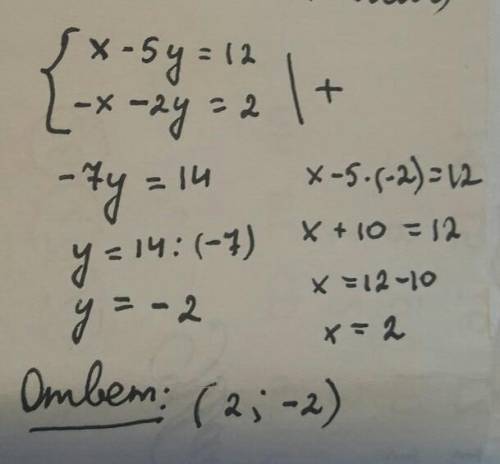 { x - 5y = 12
-x - 2y = 2 | +
-7y = 14
y = 14 : (-7)
y = -2
x - 5 · (-2) = 12
x + 10 = 12
x = 12 - 10
x = 2
Ответ: (2; -2)